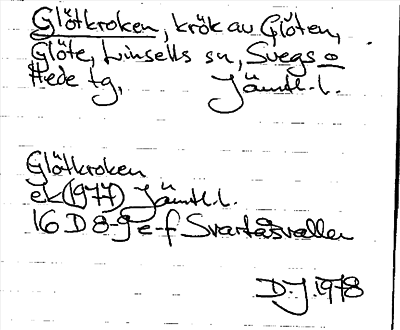 Glötkroken, krök av Glöten,
Glöte, Linsells sn, Svegs o
Hede tg, Jämtl. l.
Glötkroken
ek (1977) Jämtl. l.
16 D 8-9 e-f Svartåsvallen
D.J. 1978